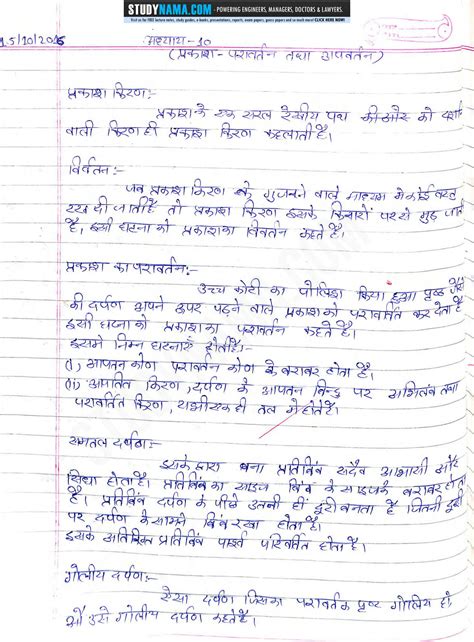 STUDYNAMA.COM - POWERING ENGINEERS, MANAGERS, DOCTORS & LAWYERS.
VISIT US FOR FREE
15/10/2015
अध्याय - 10
(प्रकाश - परावर्तन तथा अपवर्तन)
प्रकाश किरण:-
प्रकाश के एक सरल रेखीय पथ की ओर को दर्शाने
वाली किरण ही प्रकाश किरण कहलाती है।
विवर्तन:-
जब प्रकाश किरण के गुजरने वाले माध्यम में कोई वस्तु
रख दी जाती है तो प्रकाश किरण इसके किनारों पर से मुड़ जाती
है, इसी घटना को प्रकाश का विवर्तन कहते है।
प्रकाश का परावर्तन:-
उच्च कोटी का पोलिश किया हुआ पृष्ठ जैसे
की दर्पण अपने ऊपर पड़ने वाले प्रकाश को परावर्तित कर देता है
इसी घटना को प्रकाश का परावर्तन कहते है।
इसमें निम्न घटनाएँ होती है।
(i) आपतन कोण परावर्तन कोण के बराबर होता है।
(ii) आपतित किरण, दर्पण के आपतन बिन्दु पर अभिलंब तथा
परावर्तित किरण, सभी एक ही तल में होते है।
समतल दर्पण:-
इसके द्वारा बना प्रतिबिंब सदैव आभासी और
सिधा होता है। प्रतिबिंब का साइज बिंब के साइज के बराबर होता
है। प्रतिबिंब दर्पण के पीछे उतनी ही दूरी बनता है जितनी दूरी
पर दर्पण के सामने बिंब रखा होता है।
इसके अतिरिक्त प्रतिबिंब पार्श्व परिवर्तित होता है।
गोलीय दर्पण:-
ऐसा दर्पण जिसका परावर्तक पृष्ठ गोलीय हो
उसे गोलीय दर्पण कहते है।